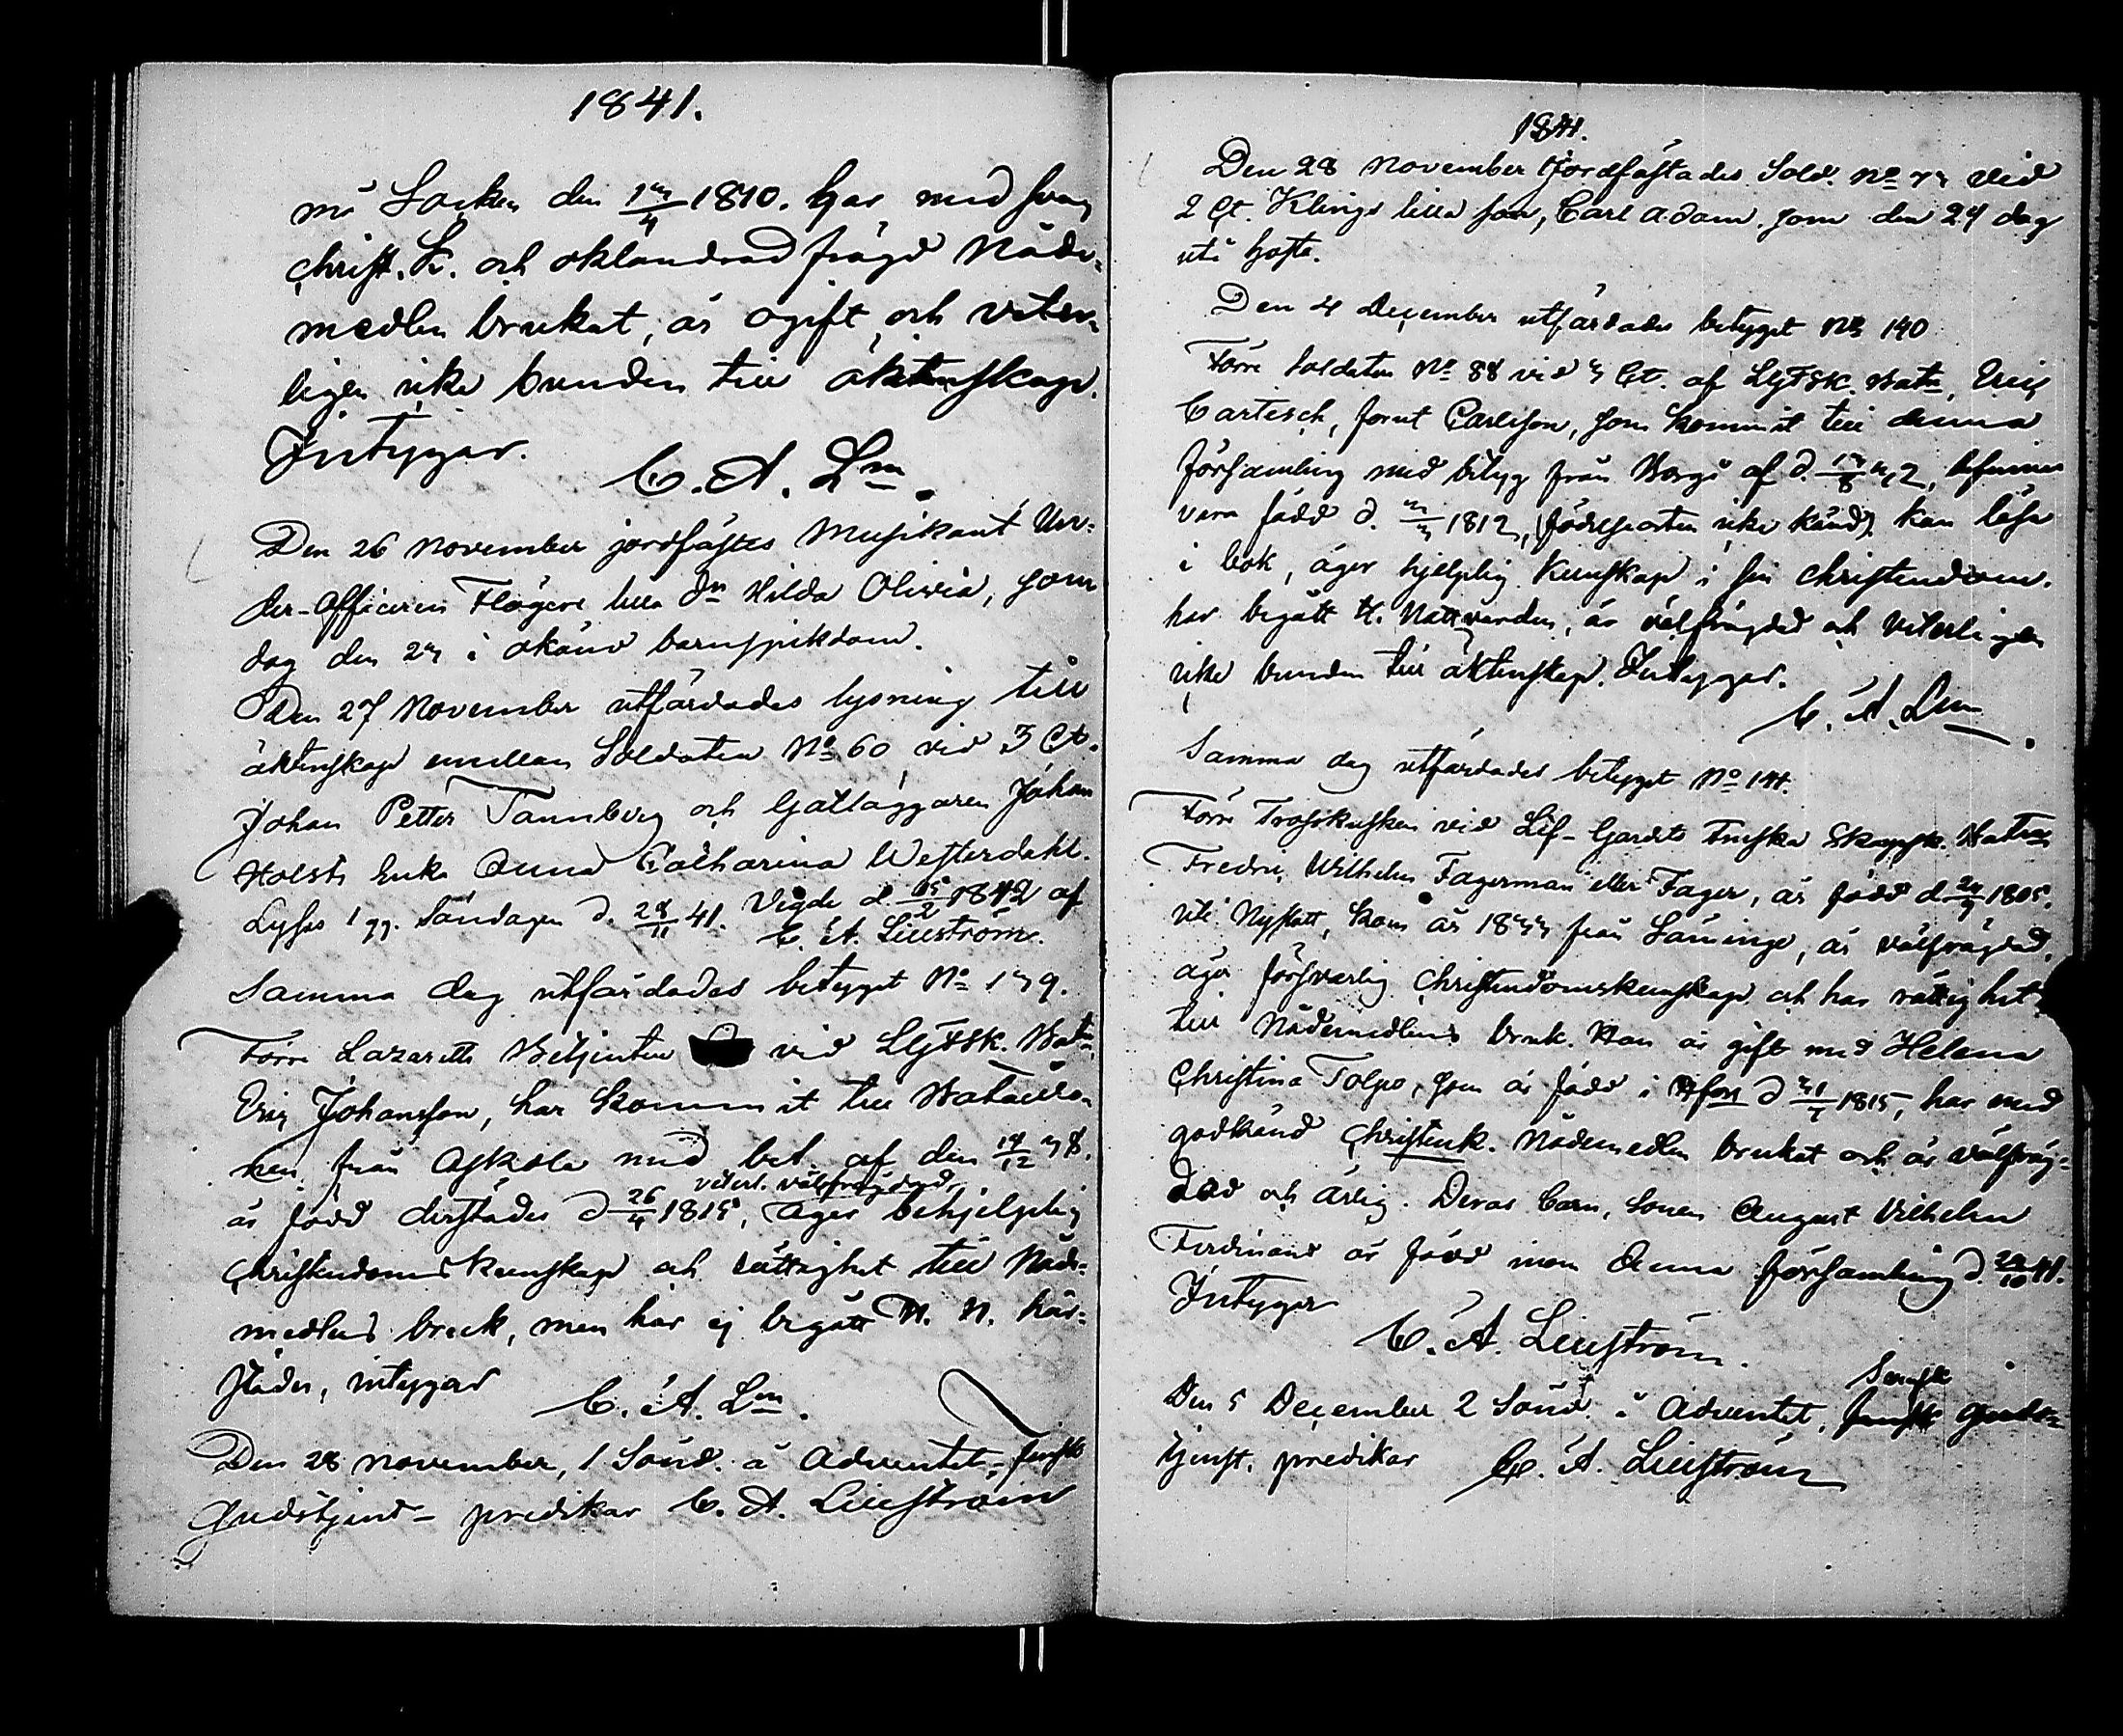 1841.
mi Socken den 13/4 1810. Har med svag
christ. K. och oklandrad frägd Nåde-
medlen brukat, är ogift och veter-
ligen icke bunden till äktenskap.
Intygar.
C. A. Lm.
Den 26 November jordfästes Musikant Un-
der-Officeren Flögers lilla dr Hilda Olivia, som
dog den 23 i okänd barnsjukdom.
Den 27 November utfärdades lysning till
äktenskap emellan Soldaten No 60 vid 3 Ct.
Johan Petter Tannberg och Gatläggaren Johan
Holsts Enka Anna Catharina Westerdahl.
Lyses 1 gg. Söndagen d. 28/11 41. Vigde d. 15/2 1842 af
C. A. Liliström.
Samma dag utfärdades betyget No 139.
Förre Lazaretts Betjenten vid LGFSk. Batn
Eric Johansson, har kommit till Batailio-
nen från Askola med bet. af den 14/12 38.
veterl. välfrägdad,
är född derstädes d. 26/4 1815, äger behjelplig
Christendoms kunskap och rättighet till Nåde-
medlens bruk, men har ej begått H. N. här-
städes, intygar
C. A. Lm.
Den 28 November, 1 Sönd. i Adventet, finsk
Gudstjenst - predikar C. A. Liliström
1841.
Den 28 November Jordfästades Sold. No 33 vid
2 Ct. Klings lilla son, Carl Adam, som den 24 dog
uti hosta.
Den 4 December utfärdades betyget No 140
Förre Soldaten No 88 vid 3 Ct. af LGFSk. Batn, Eric
Cartesch, förut Carlsson, som kommit till denna
församling med betyg från Borgå af d. 13/8 32, befinnes
vara född d. 3/3 1812, (födelseorten icke känd) kan läsa
i bok, äger hjelplig kunskap i sin christendom.
har begått H. Nattvarden, är välfrägdad och veterligen
icke bunden till äktenskap. Intygar.
C. A. Lm.
Samma dag utfärdades betyget No 141.
Förre Trosskusken vid Lif-Gardets Finska Skarpsk. Batn
Fredric Wilhelm Fagerman eller Fager, är född d. 24/9 1805.
uti Nystatt, kom år 1833 från Säminge, är välfrägdad,
äger försvarlig Christendomskunskap och har rättighet
till Nådemedlens bruk. Han är gift med Helena
Christina Tolpo, som är född i d. 31/7 1815, har med
godkänd Christenk. Nådemedlen brukat och är välfräg-
dad och ärlig. Deras barn, sonen August Vilhelm
Ferdinand är född inom denna församling d. 24/10 41.
Intygar
C. A. Liliström.
Svensk
Den 5 December 2 Sönd. i Adventet, finsk Guds-
tjenst, predikar C. A. Liliström